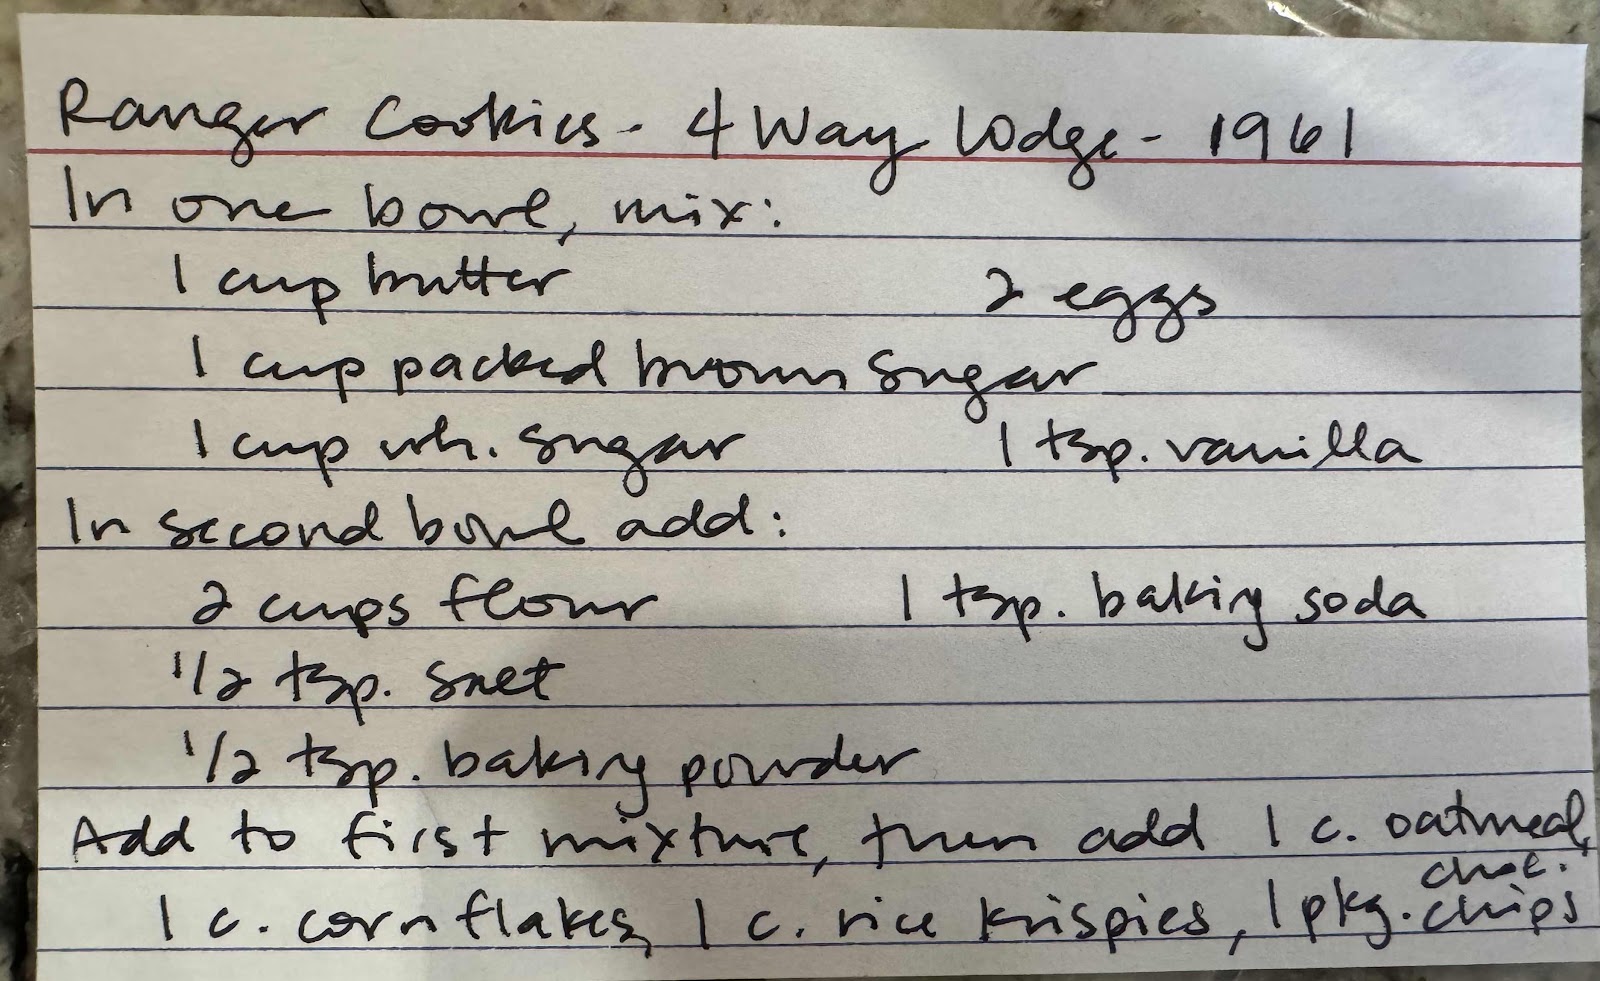 Ranger Cookies - 4 Way Lodge - 1961
In one bowl, mix:
1 cup butter 2 eggs
1 cup packed brown sugar
1 cup wh. sugar 1 tsp. vanilla
In second bowl add:
2 cups flour 1 tsp. baking soda
1/2 tsp. salt
1/2 tsp. baking powder
Add to first mixture, then add 1 c. oatmeal,
1 c. corn flakes, 1 c. rice krispies, 1 pkg. choc. chips